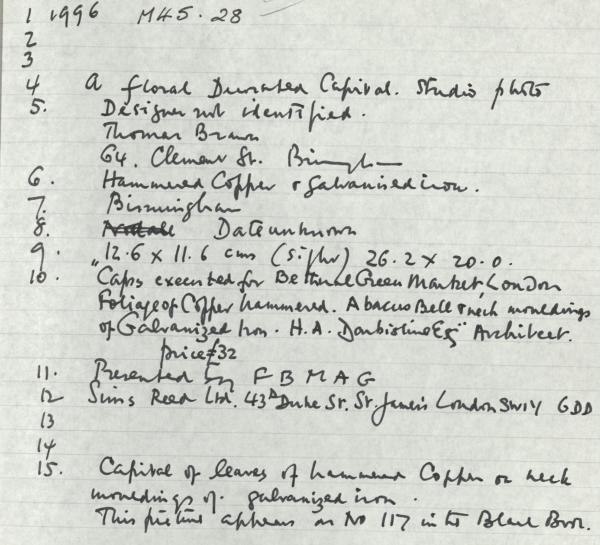 1 1996 M45.28
2
3
4 A floral Decorated Capital. Studio photo
5. Designer not identified.
Thomas Brawn
64. Clement St. Birmingham
6. Hammered Copper & galvanised iron.
7. Birmingham
8. Date unknown
9. "12.6 x 11.6 cms (sight) 26.2 x 20.0.
10. Caps executed for Bethnal Green Market, London
Foliage of Copper hammered. Abacus Bell & neck mouldings
of Galvanized Iron. H.A. Esq" Architect.
price £32
11. Presented by F B M A G
12 Sims Reed Ltd. 43A Duke St. St. James's London SW1Y 6DD
13
14
15. Capital of leaves of hammered Copper on neck
mouldings of galvanized iron.
This picture appears as No 117 in the Black Book.